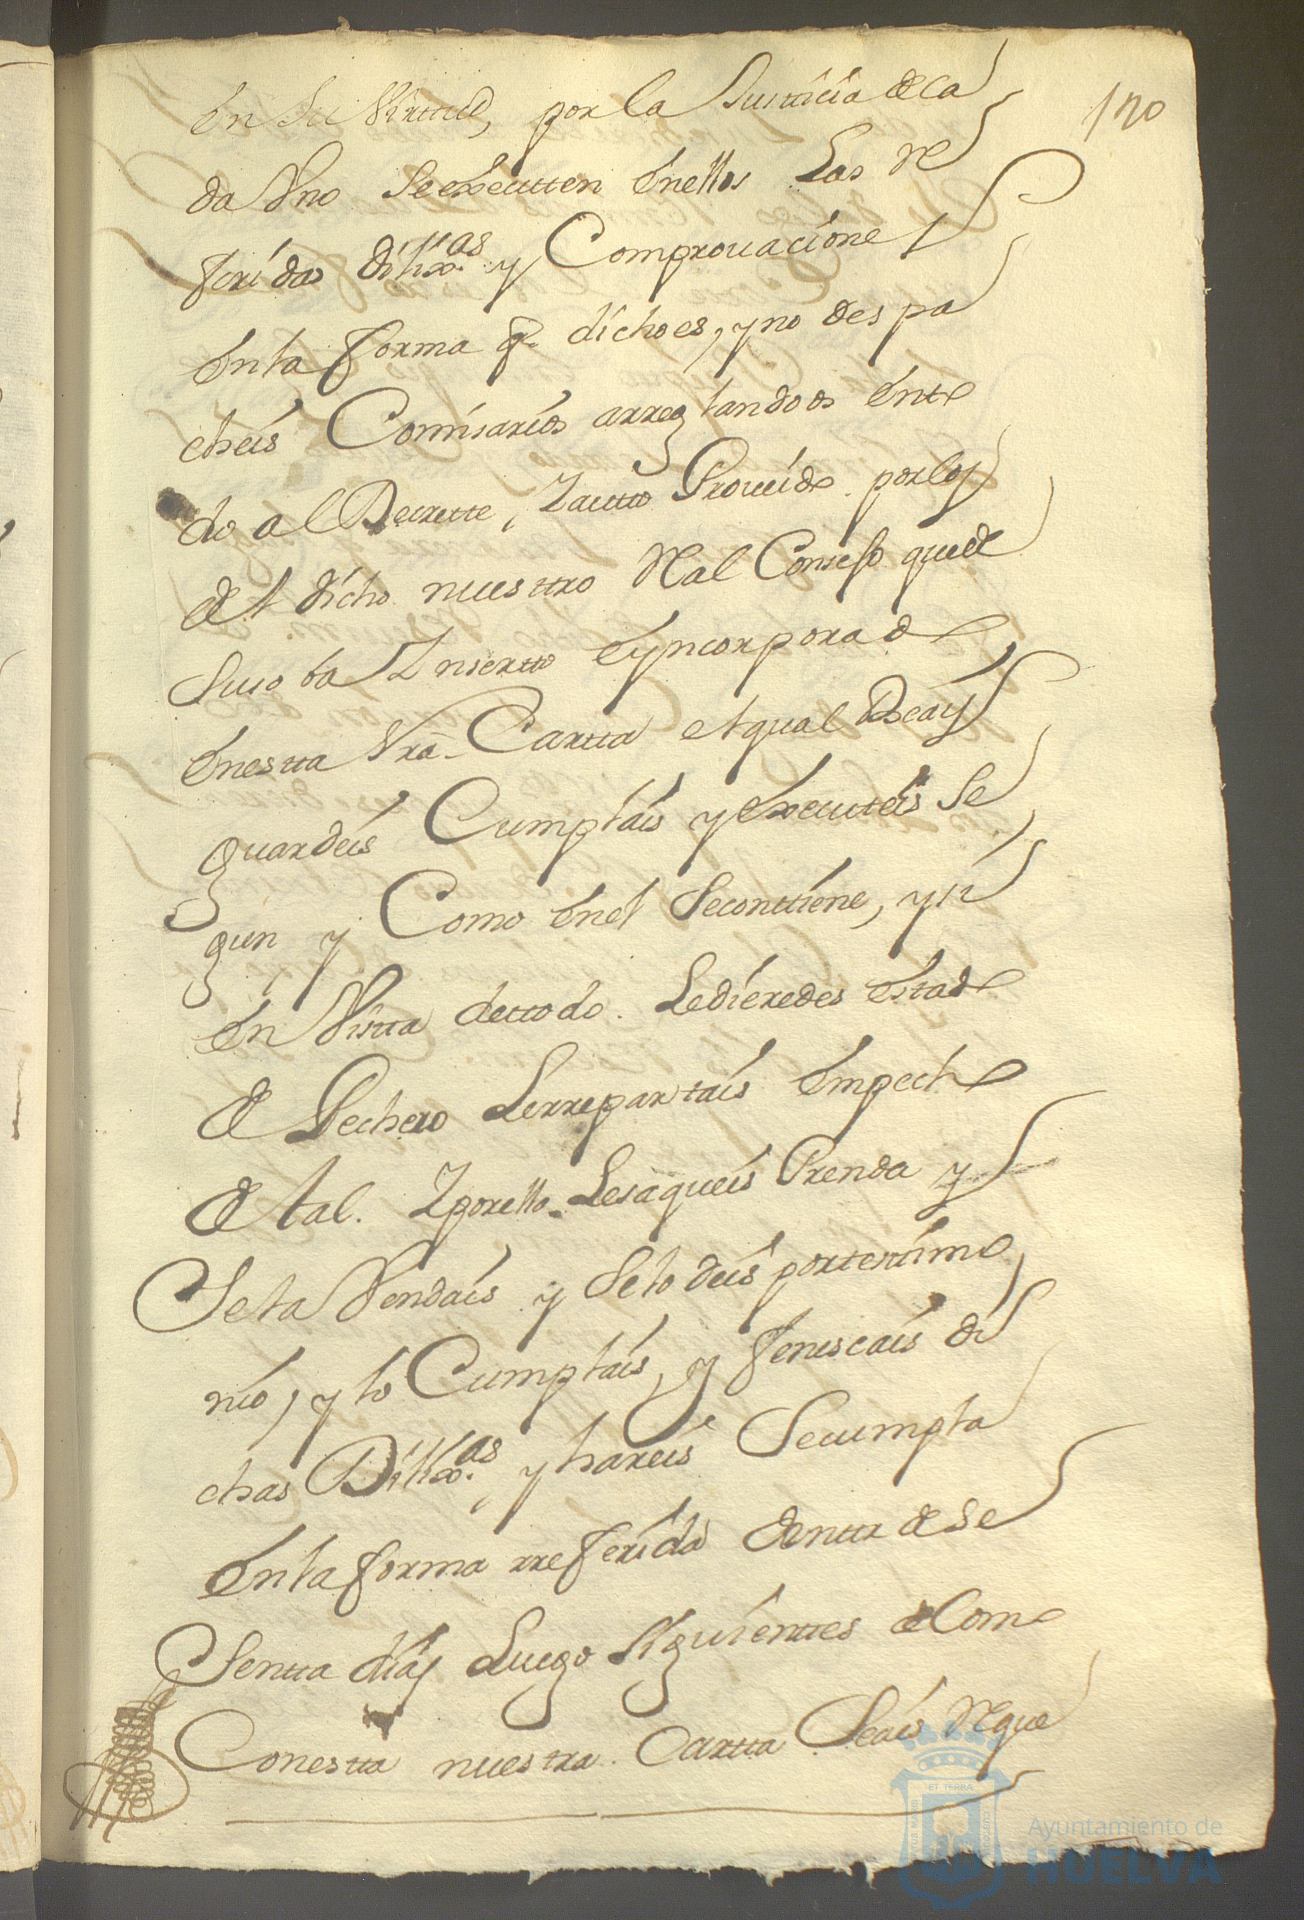 170
En Su Virttud, por la Justticia de Ca
da Vno Se executten En ellos Las Re
feridas dilixas. y Comprouacione s
En la forma q. dicho es, y no des pa
cheis Comisarios arreglandoos En tto
do al Decretto, I autto Proueido por los
del dicho nuesttro Real Consejo que de
Suso ba Inserto Eyncorporado
En estta Nra. Cartta el qual Beais
guardeis Cumplais y Executeis Se
gun y Como En el Se conttiene, y si
En Vistta de ttodo. Le dieredes Estado
de Pechero Le rrepartais Em pecho
de tal. I por ello. Le saqueis Prenda y
Se la Vendais y Se lo deis por testimo
nio, y lo Cumplais, y fenescais di
chas Dilixas. y hareis Se cumpla
En la forma rreferida denttro de Se
Sentta dias Luego Siguienttes de Como
Con estta nuestra Cartta Seais Reque
ET TERRA
Ayuntamiento de
HUELVA